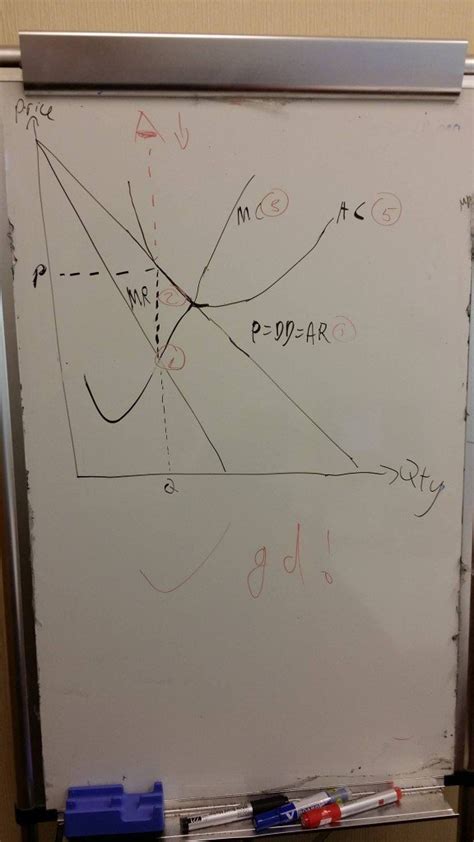 Price
A ↓
MC ③
AC ⑤
P
MR ②
P=DD=AR
①
Q
Qty
✓ gd!